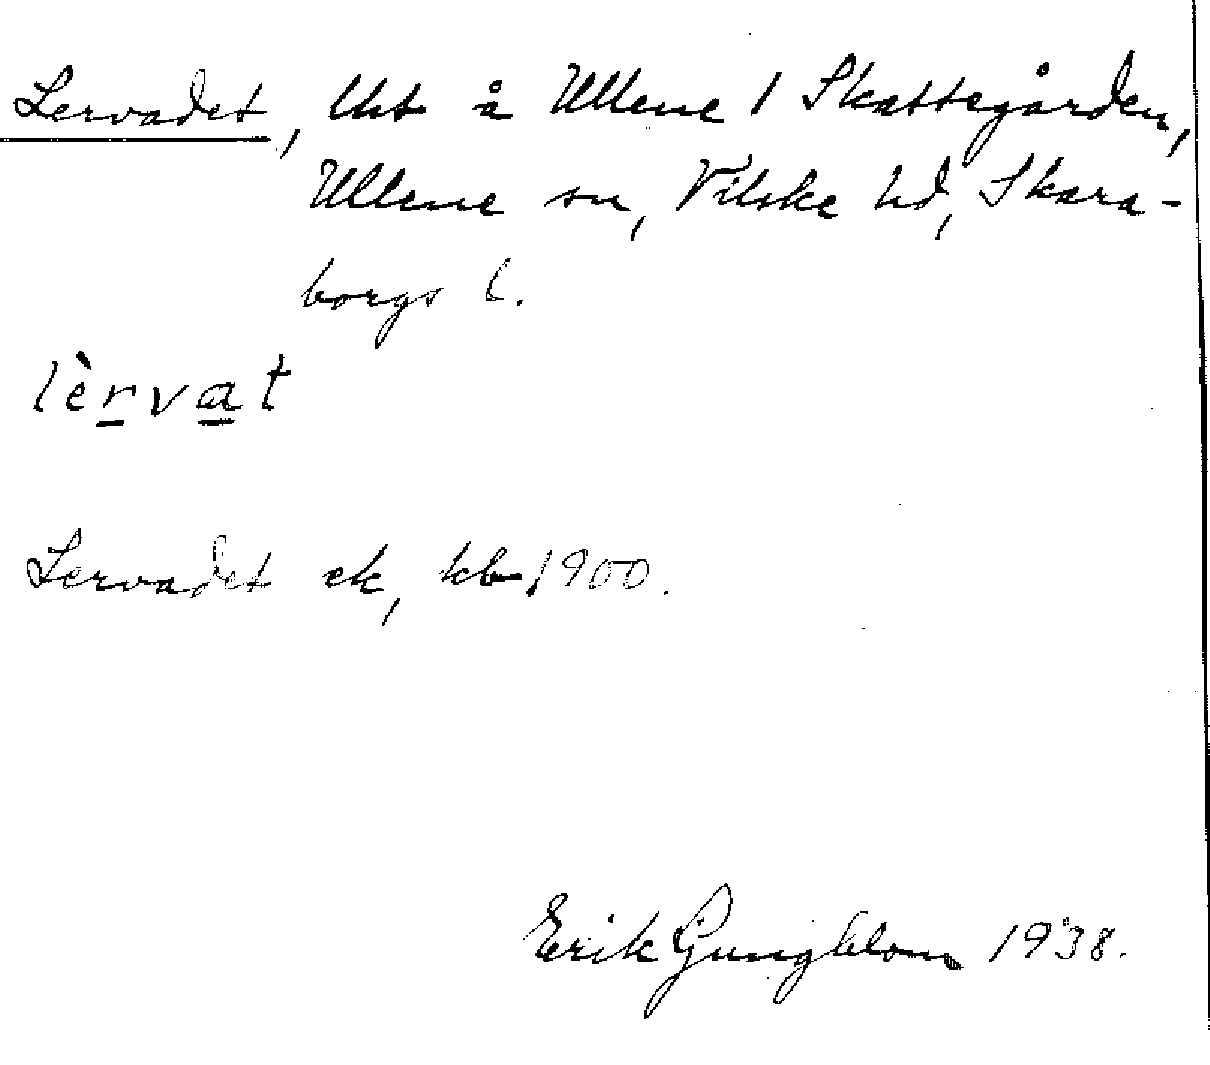 Lervadet, lht å Ullene 1 Skattegården,
Ullene sn, Vilske hd, Skara-
borgs l.
lèrvat
Lervadet ek, kb 1900.
Erik Ljungblom 1938.